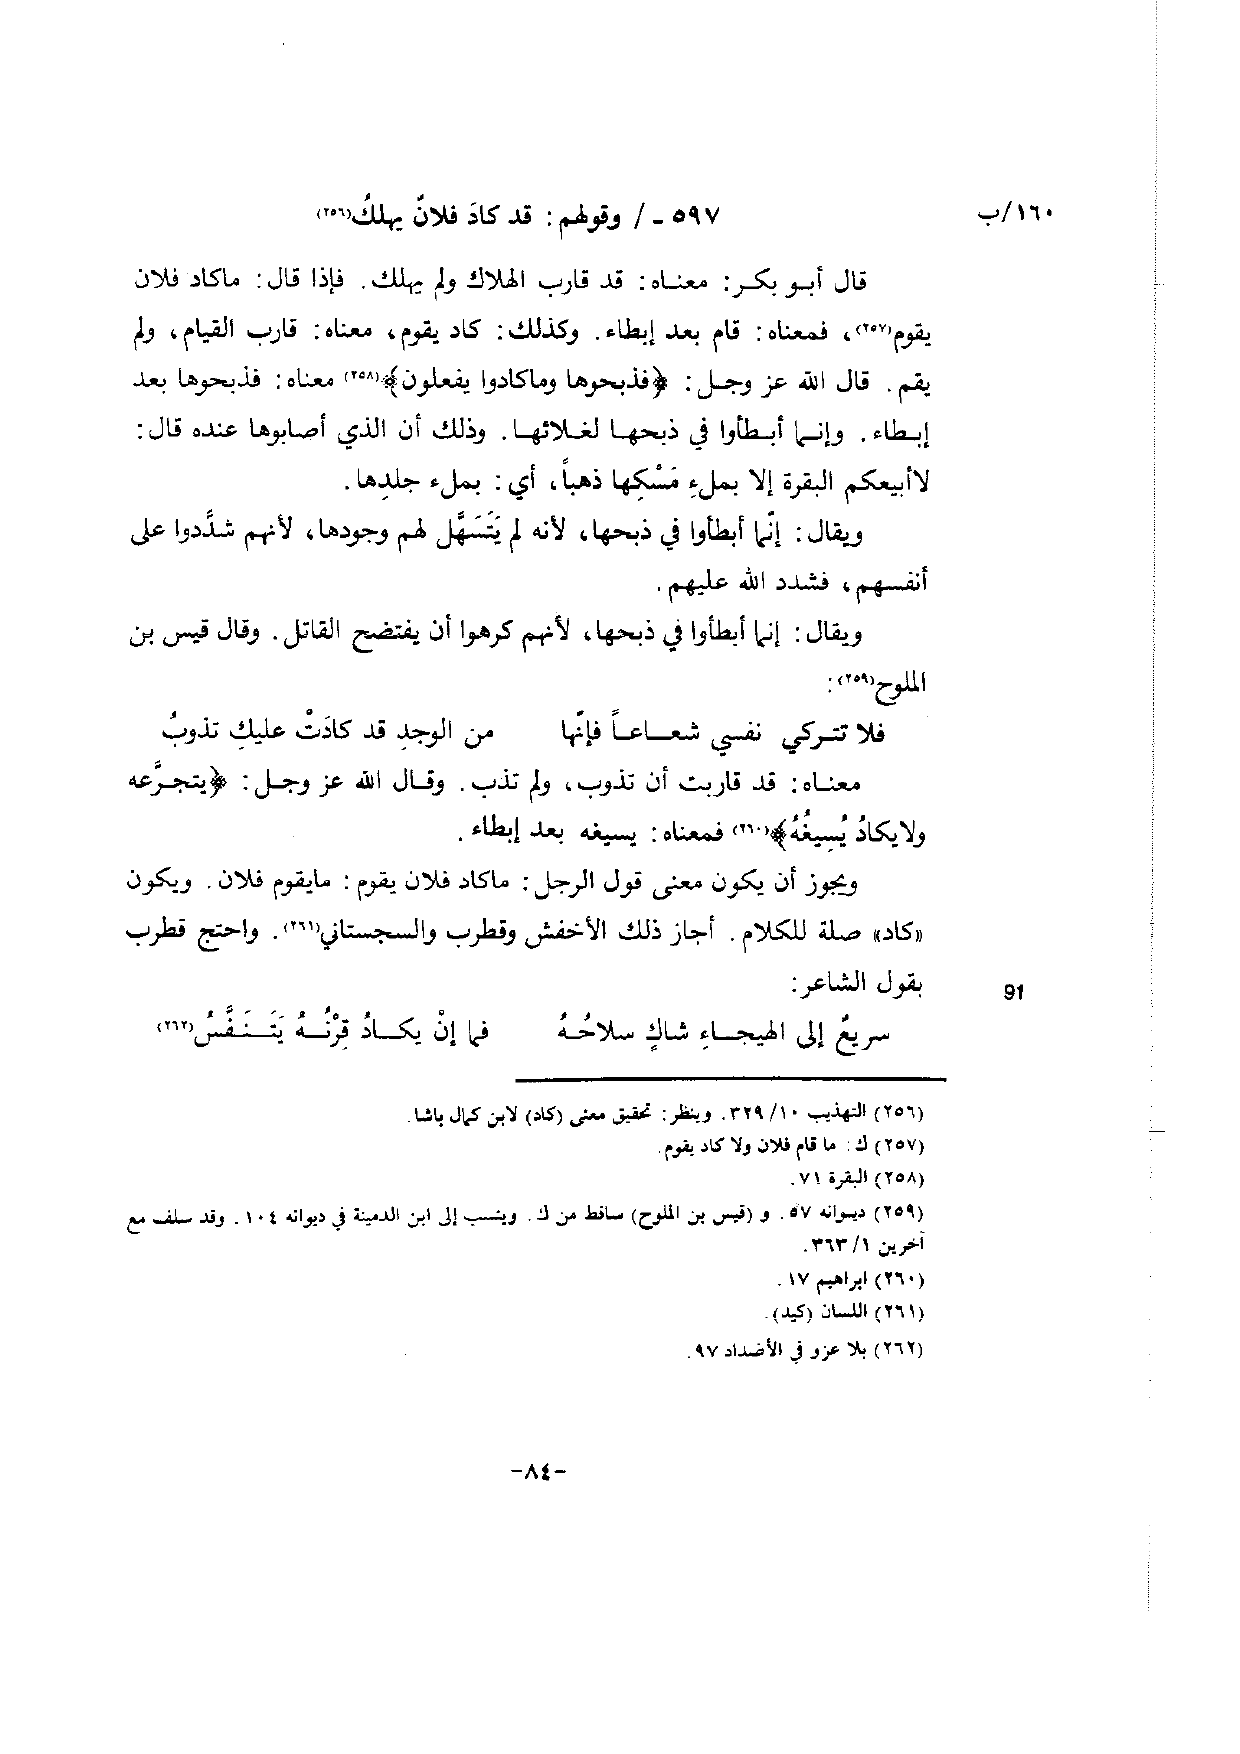 ١٦٠/ب
٥٩٧ - / وقولهم: قد كادَ فلانٌ يهلكُ(٢٥٦)
قال أبو بكر: معناه: قد قارب الهلاك ولم يهلك. فإذا قال: ماكاد فلان
يقوم(٢٥٧)، فمعناه: قام بعد إبطاء. وكذلك: كاد يقوم، معناه: قارب القيام، ولم
يقم. قال الله عز وجل: ﴿فذبحوها وماكادوا يفعلون﴾(٢٥٨) معناه: فذبحوها بعد
إبطاء. وإنما أبطأوا في ذبحها لغلائها. وذلك أن الذي أصابوها عنده قال:
لاأبيعكم البقرة إلا بملءِ مَسْكِها ذهباً، أي: بملء جلدها.
ويقال: إنّما أبطأوا في ذبحها، لأنه لم يَتَسَهَّل لهم وجودها، لأنهم شدَّدوا على
أنفسهم، فشدد الله عليهم.
ويقال: إنما أبطأوا في ذبحها، لأنهم كرهوا أن يفتضح القاتل. وقال قيس بن
الملوح(٢٥٩):
فلا تتركي نفسي شعاعاً فإنّها من الوجدِ قد كادَتْ عليكِ تذوبُ
معناه: قد قاربت أن تذوب، ولم تذب. وقال الله عز وجل: ﴿يتجرَّعه
ولايكادُ يُسيغُهُ﴾(٢٦٠) فمعناه: يسيغه بعد إبطاء.
ويجوز أن يكون معنى قول الرجل: ماكاد فلان يقوم: مايقوم فلان. ويكون
«كاد» صلة للكلام. أجاز ذلك الأخفش وقطرب والسجستاني(٢٦١). واحتج قطرب
بقول الشاعر:
91
سريعٌ إلى الهيجاءِ شاكٍ سلاحُهُ فما إنْ يكادُ قِرْنُهُ يَتَنَفَّسُ(٢٦٢)
(٢٥٦) التهذيب ١٠/ ٣٢٩. وينظر: تحقيق معنى (كاد) لابن كمال باشا.
(٢٥٧) ك: ما قام فلان ولا كاد يقوم.
(٢٥٨) البقرة ٧١.
(٢٥٩) ديوانه ٥٧. و (قيس بن الملوح) ساقط من ك. وينسب إلى ابن الدمينة في ديوانه ١٠٤. وقد سلف مع
آخرين ١/ ٣٦٣.
(٢٦٠) ابراهيم ١٧.
(٢٦١) اللسان (كيد).
(٢٦٢) بلا عزو في الأضداد ٩٧.
-٨٤-